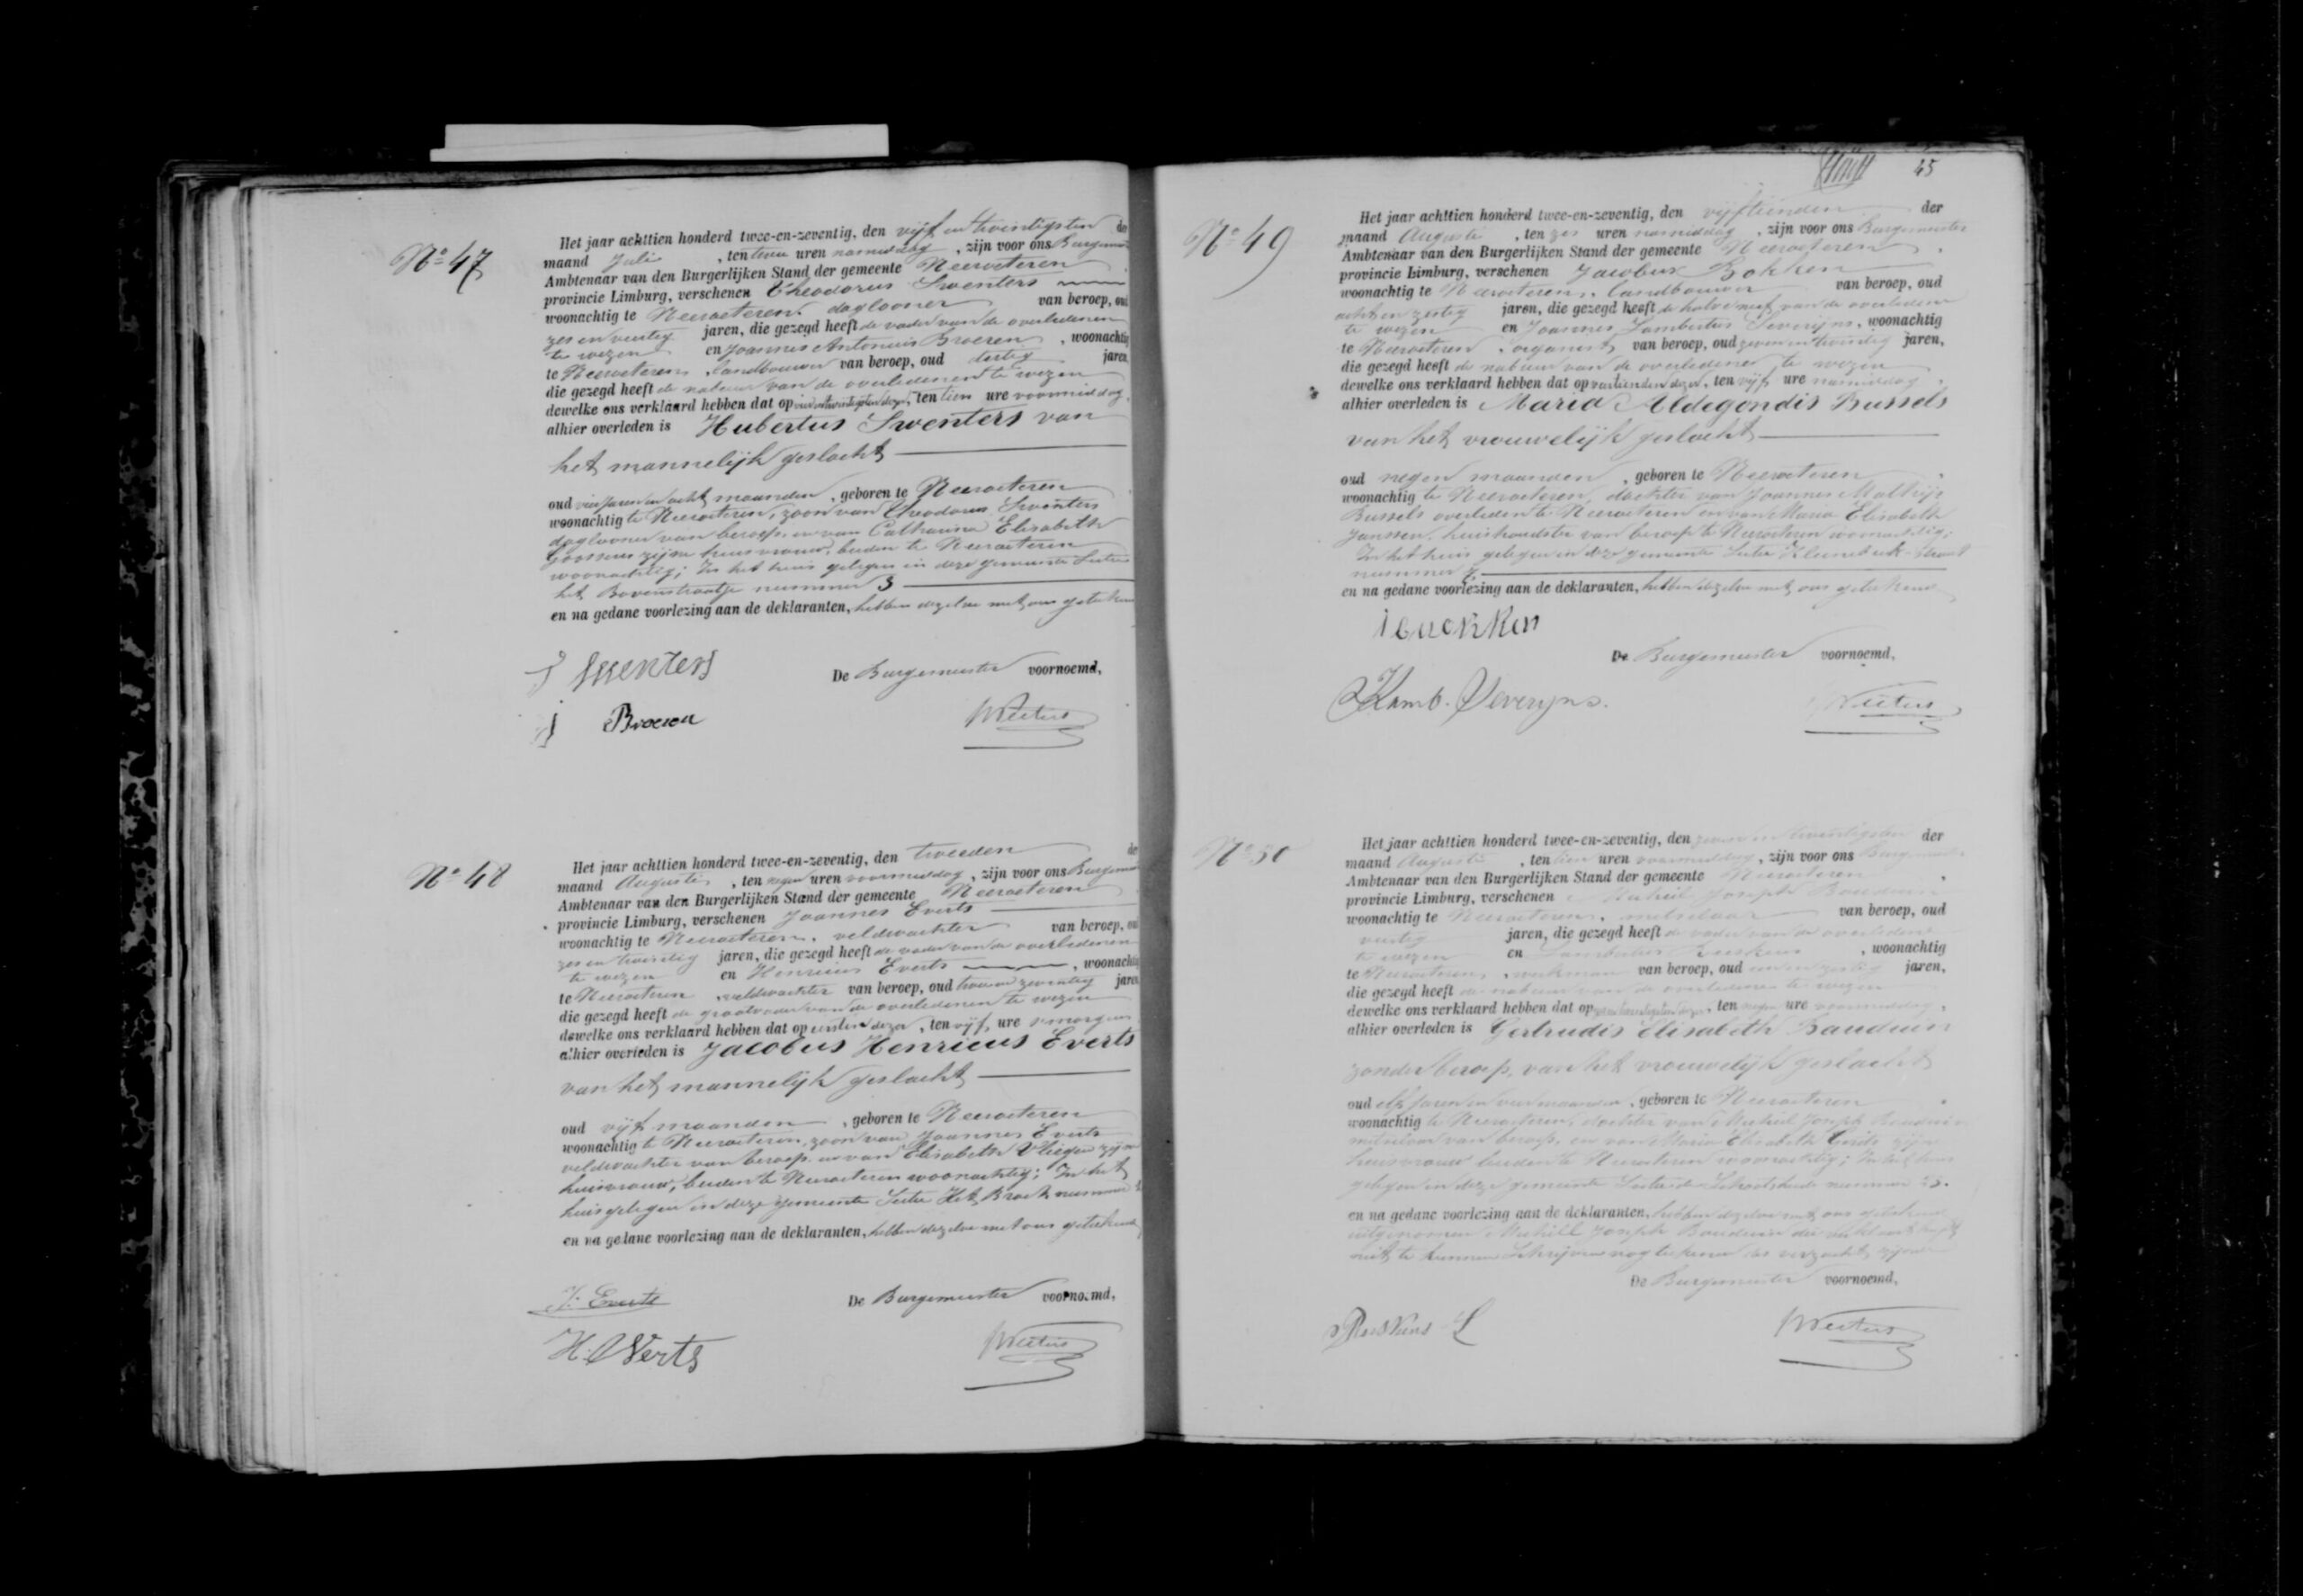 Nº 47
Het jaar achttien honderd twee-en-zeventig, den vijf en twintigsten der
maand Julii, ten twee uren namiddag, zijn voor ons Burgemeester
Ambtenaar van den Burgerlijken Stand der gemeente Neeroeteren
provincie Limburg, verschenen Theodorus Swenters
woonachtig te Neeroeteren, daglooner van beroep, oud
zes en veertig jaren, die gezegd heeft de vader van de overledenen
te wezen en Joannes Antonius Broeren, woonachtig
te Neeroeteren, landbouwer van beroep, oud dertig jaren,
die gezegd heeft de nabuur van de overledenen te wezen
dewelke ons verklaard hebben dat op vier en twintigsten dezer, ten tien ure voormiddag,
alhier overleden is Hubertus Swenters van
het mannelijk geslacht
oud vier jaren en acht maanden, geboren te Neeroeteren
woonachtig te Neeroeteren, zoon van Theodorus Swenters
daglooner van beroep, en van Catharina Elisabeth
Goossens zijne huisvrouw, beiden te Neeroeteren
woonachtig; In het huis gelegen in deze gemeente Sectie
het Bovenstraatje nummer 3
en na gedane voorlezing aan de deklaranten, hebben dezelve met ons geteekend
T Swenters
De Burgemeester voornoemd,
J Broeren
Nº 48
Het jaar achttien honderd twee-en-zeventig, den tweeden der
maand Augusti, ten negen uren voormiddag, zijn voor ons Burgemeester
Ambtenaar van den Burgerlijken Stand der gemeente Neeroeteren
provincie Limburg, verschenen Joannes Everts
woonachtig te Neeroeteren, veldwachter van beroep, oud
zes en twintig jaren, die gezegd heeft de vader van de overledenen
te wezen en Henricus Everts, woonachtig
te Neeroeteren, veldwachter van beroep, oud twee en zeventig jaren
die gezegd heeft de grootvader van de overledenen te wezen
dewelke ons verklaard hebben dat op eersten dezer, ten vijf ure smorgens
alhier overleden is Jacobus Henricus Everts
van het mannelijk geslacht
oud vijf maanden, geboren te Neeroeteren
woonachtig te Neeroeteren, zoon van Joannes Everts
veldwachter van beroep en van Elisabeth Vliegen zijne
huisvrouw, beiden te Neeroeteren woonachtig; In het
huis gelegen in deze gemeente Sectie Het Broek nummer
en na gedane voorlezing aan de deklaranten, hebben dezelve met ons geteekend
J. Everts
De Burgemeester voornoemd,
H. Everts
45
Nº 49
Het jaar achttien honderd twee-en-zeventig, den vijftienden der
maand Augusti, ten zes uren namiddag, zijn voor ons Burgemeester
Ambtenaar van den Burgerlijken Stand der gemeente Neeroeteren,
provincie Limburg, verschenen Jacobus Bokken
woonachtig te Neeroeteren, landbouwer van beroep, oud
acht en zestig jaren, die gezegd heeft de halve neef van de overledene
te wezen en Joannes Lambertus Severijns, woonachtig
te Neeroeteren, organist van beroep, oud zeven en twintig jaren,
die gezegd heeft de nabuur van de overledene te wezen
dewelke ons verklaard hebben dat op veertienden dezer, ten vijf ure namiddag,
alhier overleden is Maria Aldegondis Bussels
van het vrouwelijk geslacht
oud negen maanden, geboren te Neeroeteren
woonachtig te Neeroeteren, dochter van Joannes Mathijs
Bussels overleden te Neeroeteren en van Maria Elisabeth
Janssen, huishoudster van beroep te Neeroeteren woonachtig;
In het huis gelegen in deze gemeente Sectie
nummer
en na gedane voorlezing aan de deklaranten, hebben dezelve met ons geteekend
De Burgemeester voornoemd,
Lamb. Severyns.
Nº 50
Het jaar achttien honderd twee-en-zeventig, den zeven en twintigsten der
maand Augusti, ten tien uren voormiddag, zijn voor ons Burgemeester
Ambtenaar van den Burgerlijken Stand der gemeente Neeroeteren
provincie Limburg, verschenen Michiel Joseph Bauduin
woonachtig te Neeroeteren, metselaar van beroep, oud
veertig jaren, die gezegd heeft de vader van de overledene
te wezen en Lambertus, woonachtig
te Neeroeteren, werkman van beroep, oud jaren,
die gezegd heeft de nabuur van de overledene te wezen
dewelke ons verklaard hebben dat op dezer, ten negen ure voormiddag,
alhier overleden is Gertrudis Elisabeth Bauduin
zonder beroep, van het vrouwelijk geslacht
oud elf jaren en vier maanden, geboren te Neeroeteren
woonachtig te Neeroeteren, dochter van Michiel Joseph Bauduin
metselaar van beroep, en van Maria Elisabeth zijne
huisvrouw beiden te Neeroeteren woonachtig; In het huis
gelegen in deze gemeente Sectie nummer
en na gedane voorlezing aan de deklaranten, hebben dezelve met ons geteekend
uitgenomen Michiel Joseph Bauduin die verklaard heeft
niet te kunnen schrijven nog teekenen
De Burgemeester voornoemd,